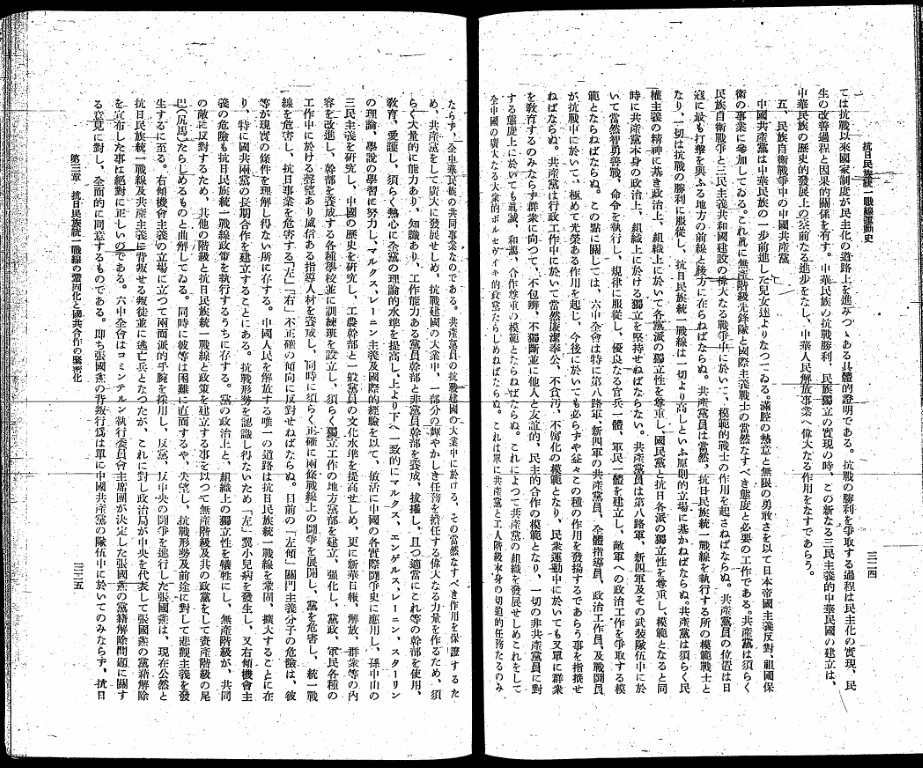 抗日民族統一戰線運動史
三三四
ては抗戰以來國家制度が民主化の道路上を進みつゝある具體的證明である。抗戰の勝利を爭取する過程は民主化の實現、民
生の改善過程と因果的關係を有す。中華民族の抗戰勝利、民族獨立の實現の時、この新なる三民主義的中華民國の建立は、
中華民族の歷史的發展上の空前なる進步をなし、中華人民解放事業へ偉大なる作用をなすであらう。
五、民族自衞戰爭中の中國共產黨
中國共產黨は中華民族の一步前進した兒女達よりなつてゐる。滿腔の熱意と無限の勇敢さを以て日本帝國主義反對、祖國保
衞の事業に參加してゐる。これ眞に無產階級先鋒隊と國際主義戰士の當然なすべき態度と必要の工作である。共產黨は須らく
民族自衞戰爭と三民主義共和國建設の偉大なる戰爭中に於いて、模範的戰士の作用を起さねばならぬ。共產黨員の位置は日
寇に最も打擊を與ふる地方の前線と後方に在らねばならぬ。共產黨員は當然、抗日民族統一戰線を執行する所の模範戰士と
なり、一切は抗戰の勝利に服從し、抗日民族統一戰線は一切より高しといふ原則的立場に基かねばならぬ。共產黨は須らく民
權主義の精神に基き政治上、組織上に於いて各黨派の獨立性を尊重し、國民黨と抗日各派の獨立性を尊重し、模範となると同
時に共產黨本身の政治上、組織上に於ける獨立を堅持せねばならない。共產黨員は第八路軍、新四軍及その武裝隊伍中に於
いて當然智勇善戰、命令を執行し、規律に服從し、優良なる官兵一體、軍民一體を建立し、敵軍への政治工作を爭取する模
範とならねばならぬ。この點に關しては、六中全會は特に第八路軍、新四軍の共產黨員、全體指導員、政治工作員、及戰鬪員
が抗戰中に於いて、極めて光榮ある作用を起し、今後に於いても必らずや益々この種の作用を發揚するであらう事を指摸せ
ねばならぬ。共產黨員は行政工作中に於いて當然廉潔奉公、不腐化の模範となり、民衆運動中に於いても又更に群衆
を敎育するのみならず群衆に向つて、不包辨、不獨斷並に他人と友誼的、民主的合作の模範となり、一切の非共產黨員に對
する態度上に於いても眞誠、和藹、合作尊重の模範とならねばならぬ。これによつて共產黨の組織を發展せしめこれをして
全中國の廣大なる大衆的ボルセヴイキ的政黨たらしめねばならぬ。これは單に共產黨と工人階級本身の切迫的任務たるのみ
ならず、全中華民族の共同事業なのである。共產黨員の抗戰建國の大業中に於ける、その當然なすべき作用を保證するた
め、共產黨をして廣大に發展せしめ、抗戰建國の大業中、一部分の輝やかしき任務を擔任する偉大なる力量を作るため、須
らく大量的に能力あり、知識あり、工作能力ある黨員幹部と非黨員幹部を養成、拔擢し、且つ適當にこれ等の幹部を使用、
敎育、愛護し、須らく熱心に全黨の理論的水準を提高し、上より下へ一致的にマルクス、エンゲルス、レーニン、スターリン
の理論、學說の學習に努力し、マルクス、レーニン主義及國際的經驗を以て、敏活に中國の各實際鬪爭史に應用し、孫中山の
三民主義を硏究し、中國の歷史を硏究し、工農幹部と一般黨員の文化水準を提高せしめ、更に新華日報、解放、群衆等の內
容を改進し、幹部を養成する各種學校並に訓練班を設立し、須らく獨立工作の地方黨部を建立、强化し、黨政、軍民各種の
工作中に於ける聲望あり威信ある指導人材を養成し、同時に須らく正確に兩條戰線上の鬪爭を展開し、黨を危害し、統一戰
線を危害し、抗日事業を危害する「左」「右」不正確の傾向に反對せねばならぬ。目前の「左傾」關門主義分子の危險は、彼
等が現實の條件を理解し得ない所に存する。中國人民を解放する唯一の道路は抗日民族統一戰線を鞏固、擴大することに在
り、特に國共兩黨の長期合作を建立することにある。抗戰形勢を認識し得ないため「左」翼小兒病を發生し、又右傾機會主
義の危險も抗日民族統一戰線政策を執行するうちに存する。黨の政治上と、組織上の獨立性を犧牲にし、無產階級が、共同
の敵に反對するため、其他の階級と抗日民族統一戰線と政策を建立する事を以つて無產階級及共の政黨をして資產階級の尾
巴（尻馬）たらしめるものと曲解してゐる。同時に彼等は困難に直面するや、失望し、抗戰形勢及前途に對して悲觀主義を發
生するに至る。右傾機會主義の立場に立つて兩面派的手腕を採用し、反黨、反中央の鬪爭を進行した張國燾は、現在公然と
抗日民族統一戰線及共產主義に背叛せる叛徒並に逃亡兵となつたが、これに對し政治局が中央を代表して張國燾の黨籍解除
を宣布した事は絕對に正しいのである。六中全會はコミンテルン執行委員會主席團が決定した張國燾の黨籍解除問題に關す
る意見に對し、全面的に同意するものである。卽ち張國燾の背叛行爲は單に中國共產黨の隊伍中に於いてのみならず、抗日
第三章　抗日民族統一戰線の鞏固化と國共合作の緊密化
三三五